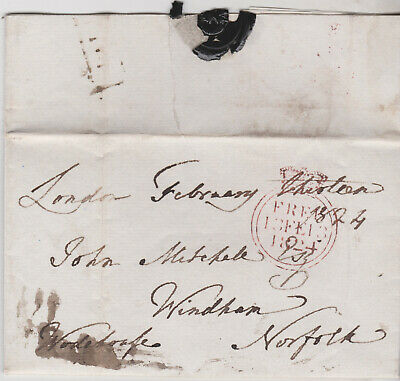 London February thirteen
1824
FREE
13FE13
1824
John Mitchell Esq
Windham
Wodehouse Norfolk